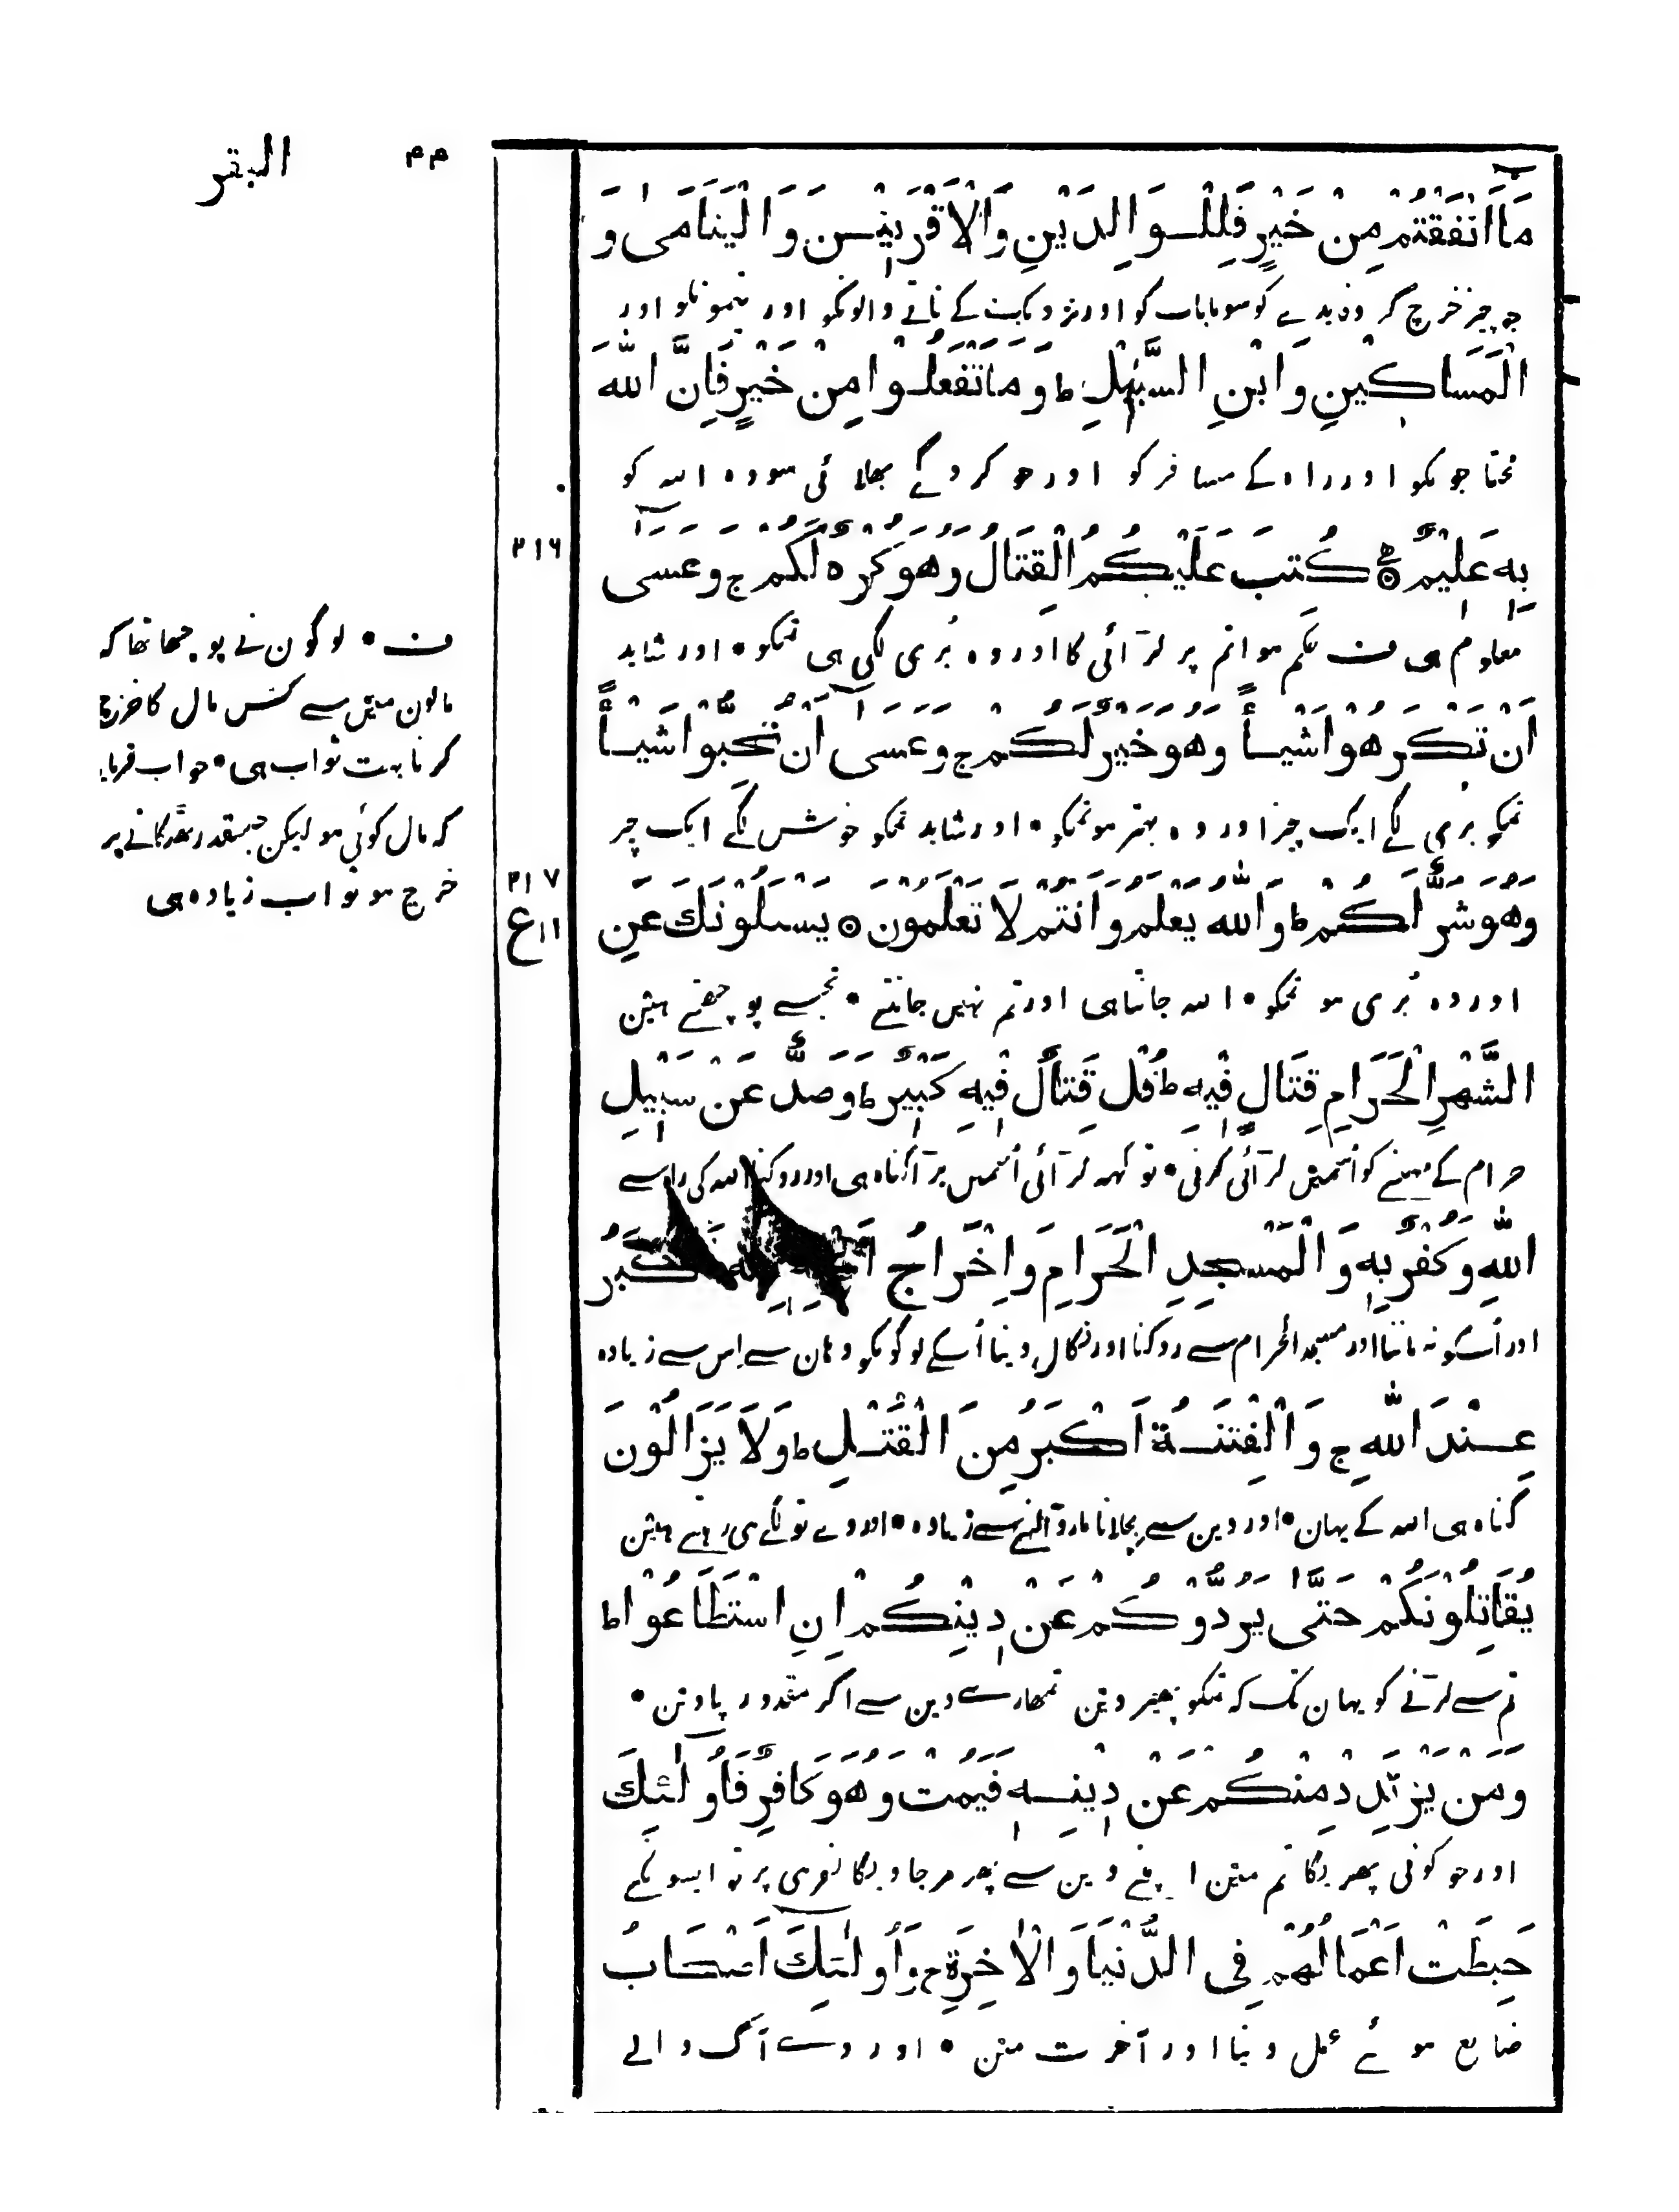 البقر ٣٣
مَا اَنْفَقْتُمْ مِنْ خَيْرٍ فَلِلْوَالِدَيْنِ وَالْاَقْرَبِيْنَ وَالْيَتَامٰى وَ
جو چیز خرچ کرو فائدے کو سو ماباپ کو اور نزدیک کے ناتے والونکو اور یتیمونکو اور
الْمَسَاكِيْنِ وَابْنِ السَّبِيْلِ ط وَمَا تَفْعَلُوْا مِنْ خَيْرٍ فَاِنَّ اللّٰهَ
محتاجونکو اور راہ کے مسافر کو اور جو کروگے بھلائی سو وہ اللہ کو
بِهٖ عَلِيْمٌ كُتِبَ عَلَيْكُمُ الْقِتَالُ وَهُوَ كُرْهٌ لَكُمْ ج وَعَسٰى
٢١٦
معلوم ہی ف حکم ہوا تم پر لڑائی کا اور وہ بُری لگی ہی تمکو • اور شاید
اَنْ تَكْرَهُوْا شَيْـاً وَهُوَ خَيْرٌ لَكُمْ ج وَعَسٰى اَنْ تُحِبُّوْا شَيْـاً
تمکو بری لگے ایک چیز اور وہ بہتر ہو تمکو • اور شاید تمکو خوش لگے ایک چیز
وَهُوَ شَرٌّ لَكُمْ ط وَاللّٰهُ يَعْلَمُ وَاَنْتُمْ لَا تَعْلَمُوْنَ ۝ يَسْـَٔلُوْنَكَ عَنِ
٢١٧
ع ١١
اور وہ بُری ہو تمکو • اللہ جانتا ہی اور تم نہیں جانتے • تجھسے پوچھتے ہیں
الشَّهْرِ الْحَرَامِ قِتَالٍ فِيْهِ ط قُلْ قِتَالٌ فِيْهِ كَبِيْرٌ ط وَصَدٌّ عَنْ سَبِيْلِ
حرام کے مہینے کو اُسمیں لڑائی کرنی • تو کہہ لڑائی اُسمیں بڑا گناہ ہی اور روکنا اللہ کی راہ سے
اللّٰهِ وَكُفْرٌ بِهٖ وَالْمَسْجِدِ الْحَرَامِ وَاِخْرَاجُ اَكْبَرُ
اور اُسکو نہ ماننا اور مسجد الحرام سے روکنا اور نکال دینا اُسکے لوگونکو وہان سے اِس سے زیادہ
عِنْدَ اللّٰهِ ج وَالْفِتْنَةُ اَكْبَرُ مِنَ الْقَتْلِ ط وَلَا يَزَالُوْنَ
گناہ ہی اللہ کے یہان • اور دین سے بچلانا مار ڈالنے سے زیادہ • اور وے تو لگے ہی رہتے ہیں
يُقَاتِلُوْنَكُمْ حَتّٰى يَرُدُّوْكُمْ عَنْ دِيْنِكُمْ اِنِ اسْتَطَاعُوْا ط
تم سے لڑنے کو یہان تک کہ تمکو پھیر دین تمھارے دین سے اگر مقدور پاوین •
وَمَنْ يَرْتَدِدْ مِنْكُمْ عَنْ دِيْنِهٖ فَيَمُتْ وَهُوَ كَافِرٌ فَاُولٰئِكَ
اور جو کوئی پھریگا تم مین اپنے دین سے پھر مرجاویگا کفر ہی پر تو ایسونکے
حَبِطَتْ اَعْمَالُهُمْ فِى الدُّنْيَا وَالْاٰخِرَةِ ج وَاُولٰئِكَ اَصْحَابُ
ضایع ہوئے عمل دنیا اور آخرت مین • اور وے آگ والے
ف • لوگون نے پوچھا تھا کہ
مالون مین سے کس مال کا خرچ
کرنا بہت ثواب ہی • جواب فرمایا
کہ مال کوئی ہو لیکن جسقدر ٹھکانے پر
خرچ ہو ثواب زیادہ ہی